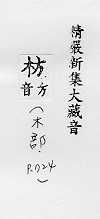 精嚴新集大藏音
枋:方音(木部.P.024)